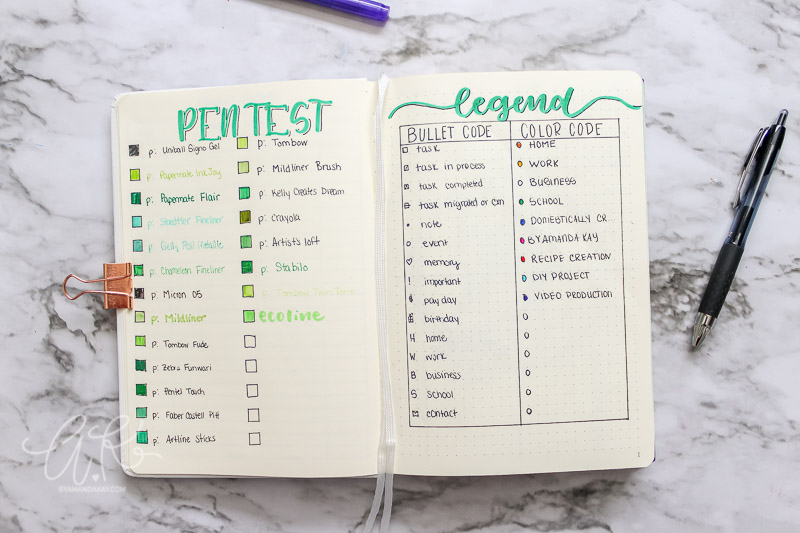 PEN TEST
p: Uniball Signo Gel
Papermate InkJoy
Papermate Flair
Staedtler Fineliner
Gelly Roll
p: Chameleon Fineliner
p: Micron 05
p: Mildliner
p: Tombow Fude
p: Zebra Funwari
p: Pentel Touch
p: Faber Castell Pitt
p: Artline Sticks
p: Tombow
p: Mildliner Brush
p: Kelly Creates Dream
p: Crayola
p: Artist's loft
p: Stabilo
p: Tombow
ecoline
legend
BULLET CODE
task
task in process
task completed
task migrated or can
note
event
memory
! important
$ pay day
birthday
H home
W work
B business
S school
contact
COLOR CODE
HOME
WORK
BUSINESS
SCHOOL
DOMESTICALLY CR...
BYAMANDA KAY
RECIPE CREATION
DIY PROJECT
VIDEO PRODUCTION
1
BYAMANDAKAY.COM